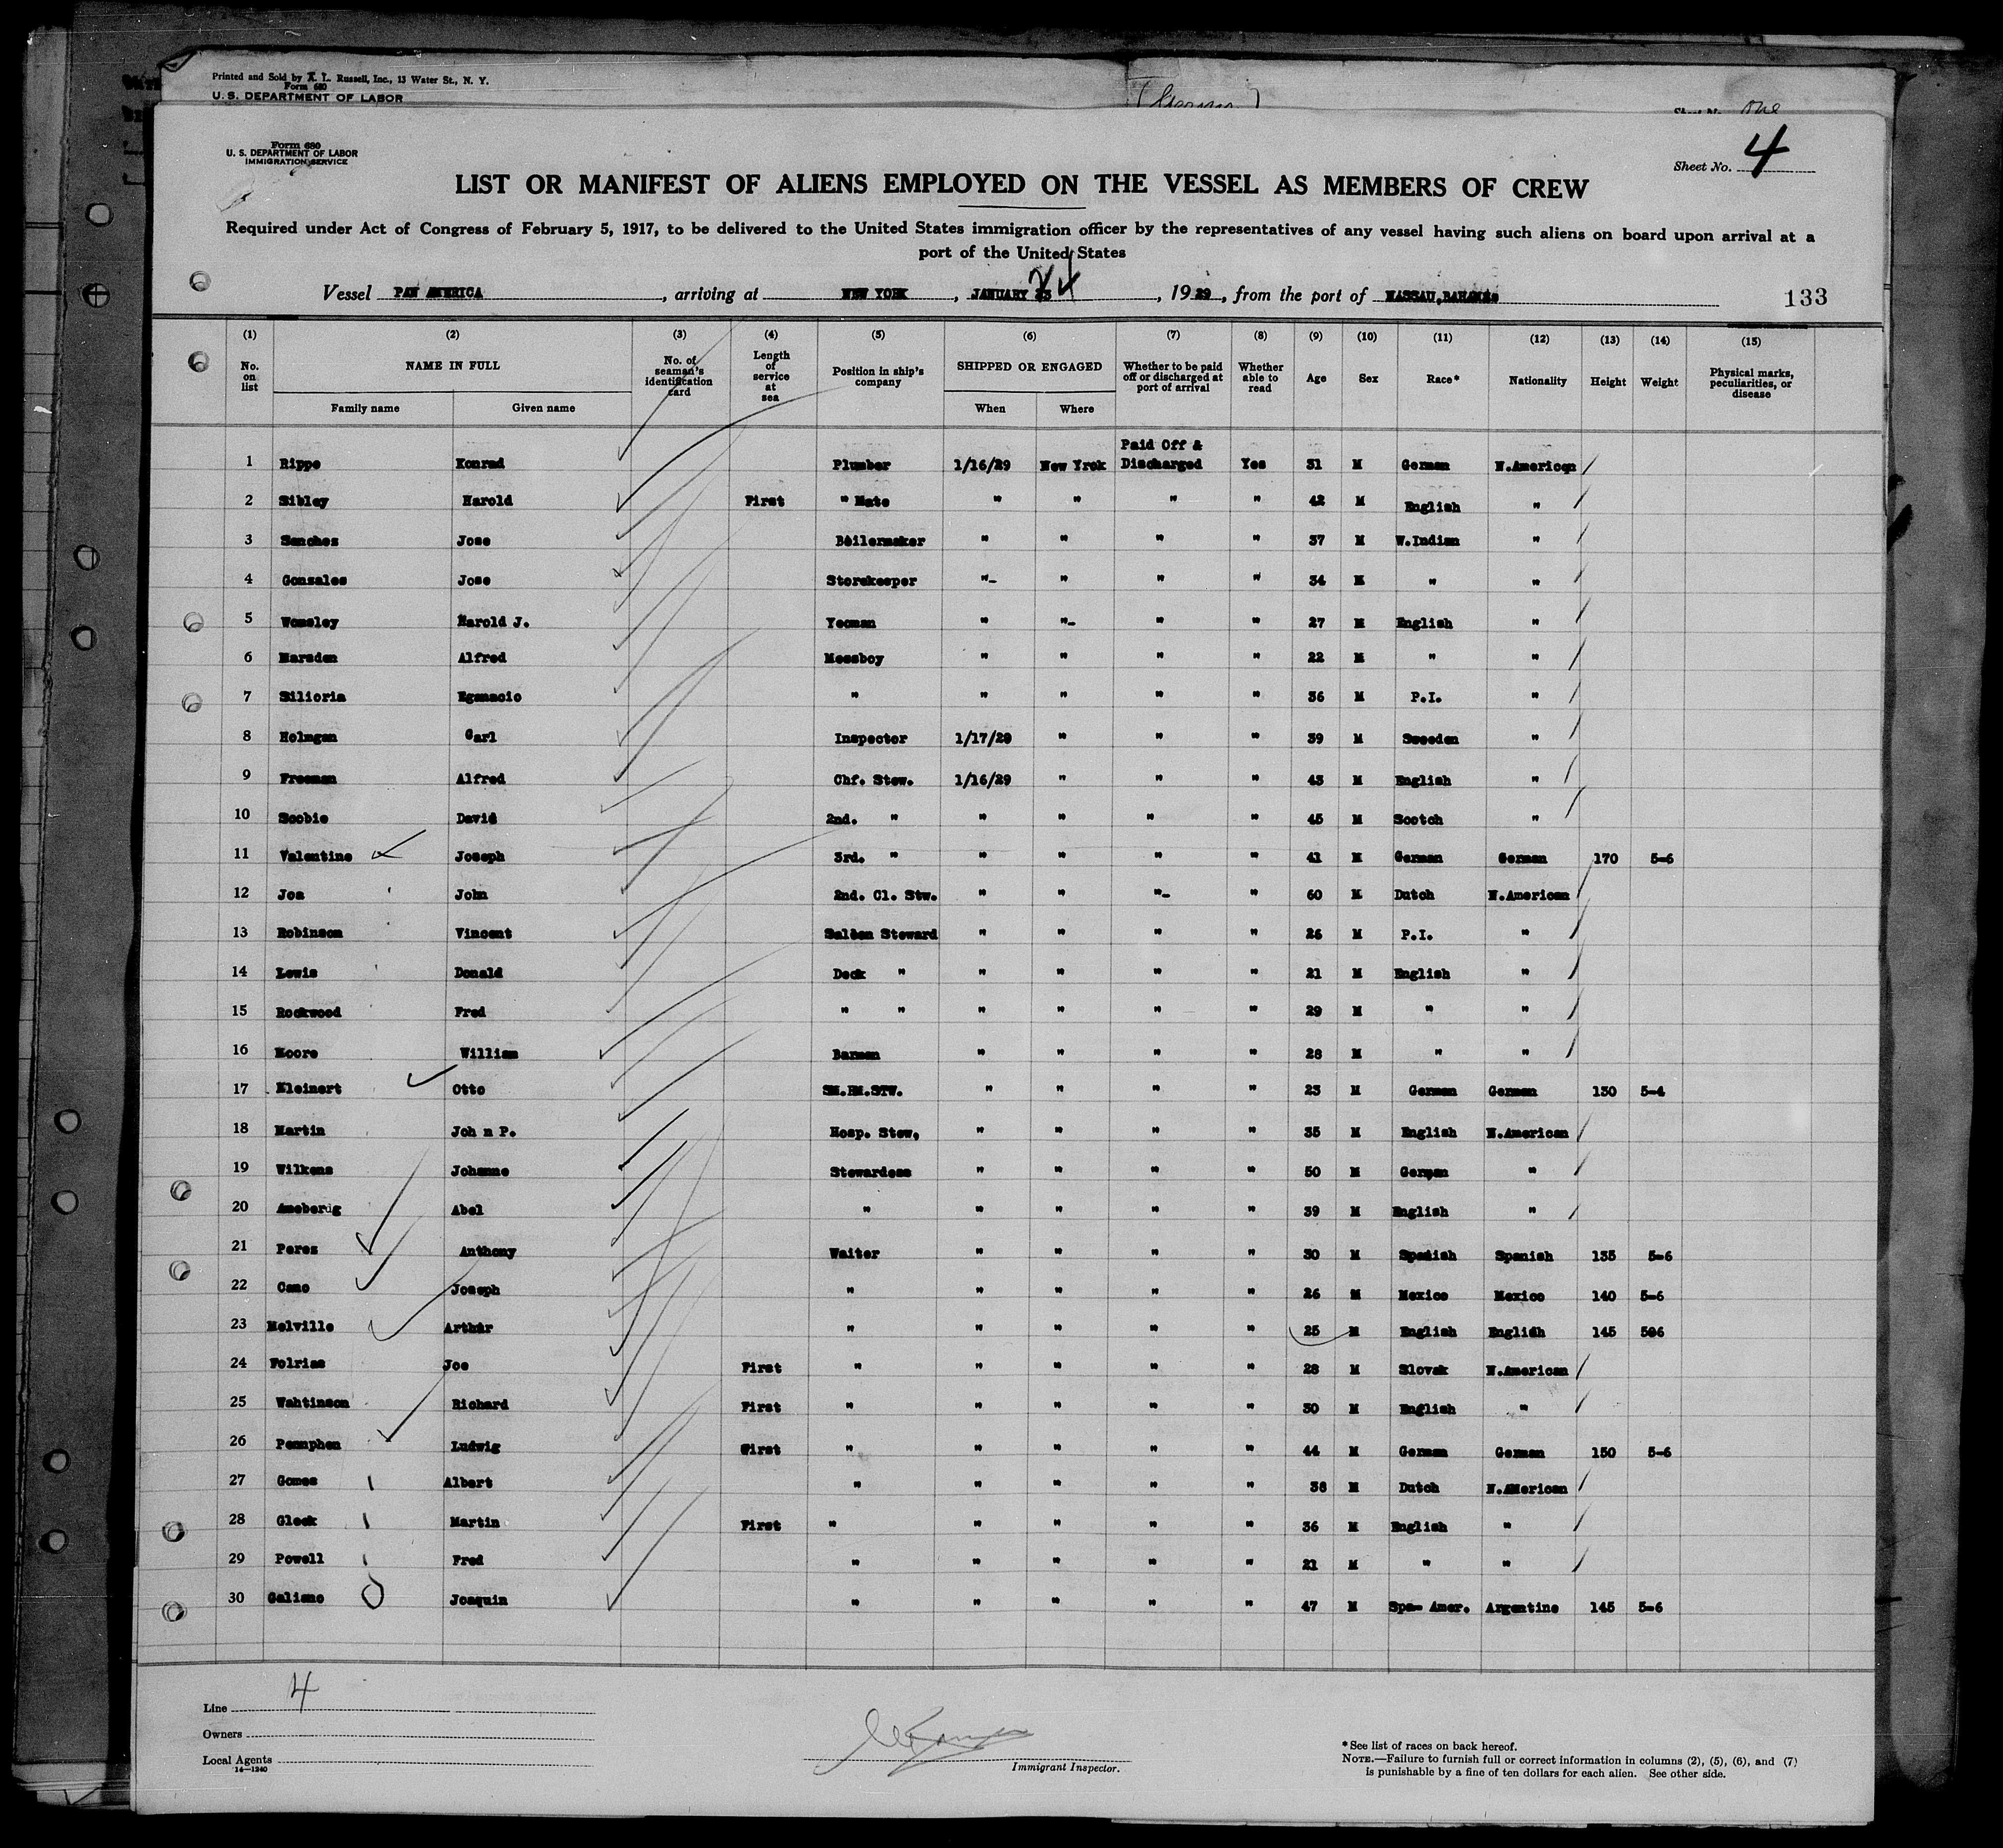 Printed and Sold by A. L. Russell, Inc., 13 Water St., N. Y.
Form 680
U. S. DEPARTMENT OF LABOR
Sheet No. One
Form 680
U. S. DEPARTMENT OF LABOR
IMMIGRATION SERVICE
Sheet No. 4
LIST OR MANIFEST OF ALIENS EMPLOYED ON THE VESSEL AS MEMBERS OF CREW
Required under Act of Congress of February 5, 1917, to be delivered to the United States immigration officer by the representatives of any vessel having such aliens on board upon arrival at a
port of the United States
Vessel PAN AMERICA, arriving at NEW YORK, JANUARY 24, 1929, from the port of NASSAU, BAHAMAS 133
(1) (2) (3) (4) (5) (6) (7) (8) (9) (10) (11) (12) (13) (14) (15)
No. on list NAME IN FULL No. of seaman's identification card Length of service at sea Position in ship's company SHIPPED OR ENGAGED Whether to be paid off or discharged at port of arrival Whether able to read Age Sex Race* Nationality Height Weight Physical marks, peculiarities, or disease
Family name Given name When Where
1 Rippe Konrad Plumber 1/16/29 New Yrok Paid Off & Discharged Yes 31 M German N.American
2 Sibley Harold First " Mate " " " " 42 M English "
3 Sanches Jose Boilermaker " " " " 37 M W.Indian "
4 Gonzales Jose Storekeeper "- " " " 34 M " "
5 Womsley Harold J. Yeoman " "- " " 27 M English "
6 Marsden Alfred Messboy " " " " 22 M " "
7 Silioria Egenacio " " " " " 36 M P.I. "
8 Holmgan Carl Inspector 1/17/29 " " " 39 M Sweeden "
9 Freeman Alfred Chf. Stew. 1/16/29 " " " 43 M English "
10 Scobie David 2nd. " " " " " 45 M Scotch "
11 Valentine Joseph 3rd. " " " " " 41 M German German 170 5-6
12 Joa John 2nd. Cl. Stw. " " "- " 60 M Dutch N.American
13 Robinson Vincent Saloon Steward " " " " 26 M P.I. "
14 Lewis Donald Deck " " " " " 21 M English "
15 Rockwood Fred " " " " " " 29 M " "
16 Moore William Barman " " " " 28 M " "
17 Kleinert Otto SM.RM.STW. " " " " 23 M German German 130 5-4
18 Martin Joh n P. Hosp. Stew, " " " " 35 M English N.American
19 Wilkens Johanne Stewardess " " " " 50 M German "
20 Ameberg Abel " " " " " 39 M English "
21 Perez Anthony Waiter " " " " 30 M Spanish Spanish 135 5-6
22 Cano Joseph " " " " " 26 M Mexico Mexico 140 5-6
23 Melville Arthur " " " " " 25 M English English 145 506
24 Folrias Joe First " " " " " 28 M Slovak N.American
25 Wahtinson Richard First " " " " " 30 M English "
26 Pennphen Ludwig First " " " " " 44 M German German 150 5-6
27 Gomes Albert " " " " " 38 M Dutch N.AMerican
28 Gleek Martin First " " " " " 36 M English "
29 Powell Fred " " " " " 21 M " "
30 Galiano Joaquin " " " " " 47 M Spa- Amer. Argentine 145 5-6
Line 4
Owners
Local Agents
14—1240
Immigrant Inspector.
*See list of races on back hereof.
NOTE.—Failure to furnish full or correct information in columns (2), (5), (6), and (7)
is punishable by a fine of ten dollars for each alien. See other side.